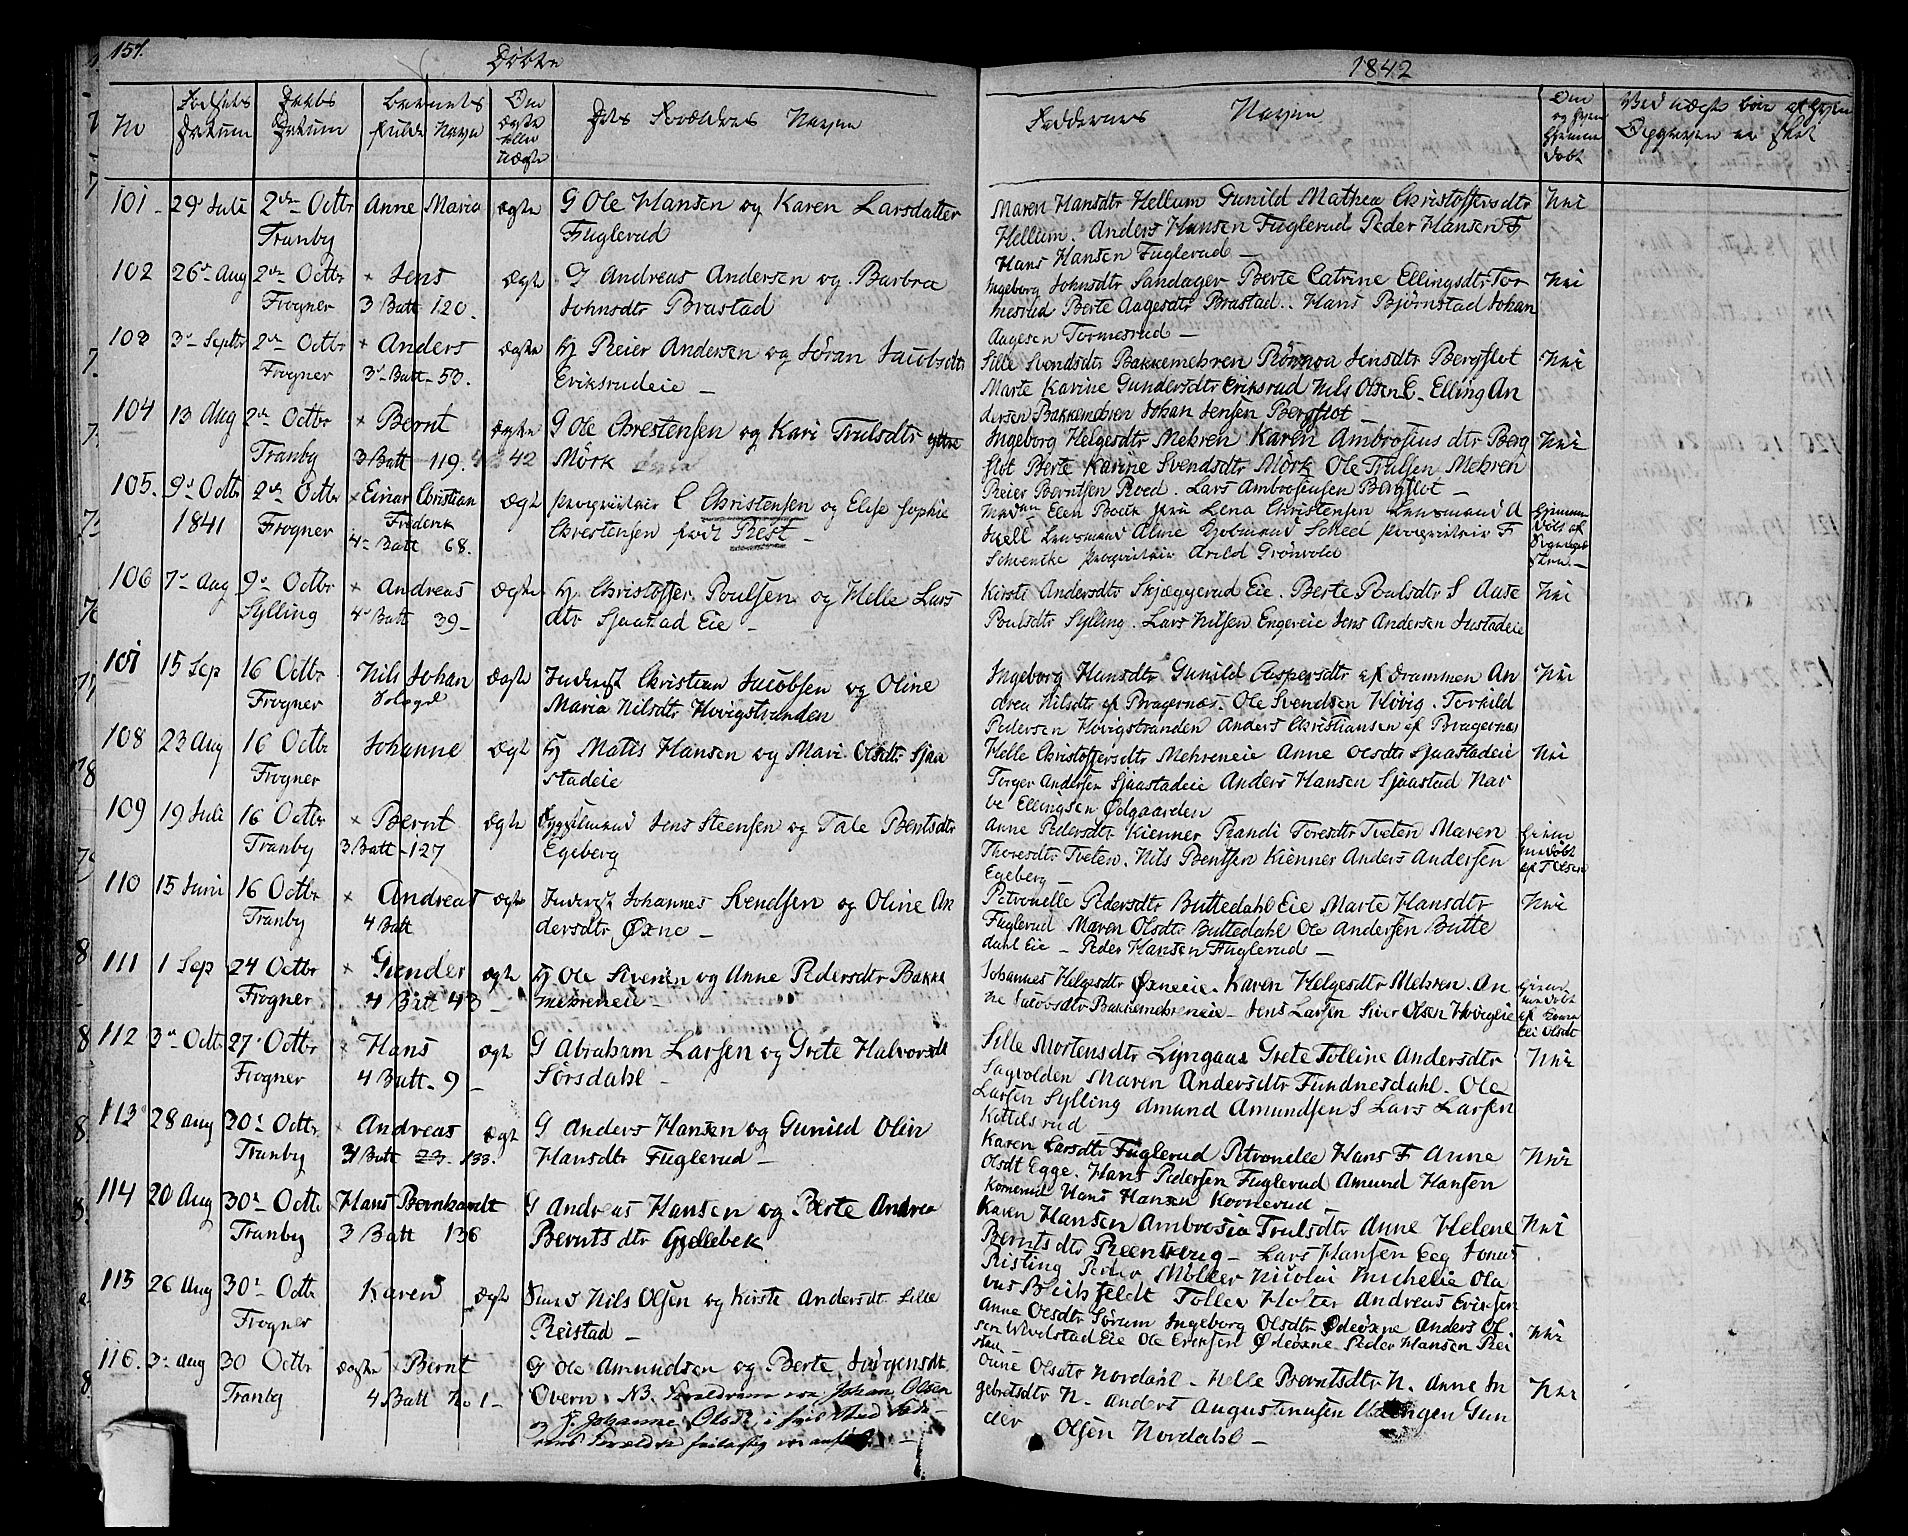 157.
Døbte
1842
No
Fødsels Datum
Daabs Datum
Barnets fulde Navn
Om ægte eller uægte
Dets Forældres Navne
Faddernes Navne
Om hjemme døbt
Ved uægte børn
101 29' Juli 2den Octbr Tranby Anne Maria ægte G Ole Hansen og Karen Larsdatter Fuglerud
Maren Hansdtr Hellum Gunild Mathea Christoffersdtr
Hellum. Anders Hansen Fuglerud Peder Hansen F
Hans Hansen Fuglerud — Nei
102 26' Aug 2den Octbr Frogner × Jens 3 Batt 120. ægte G Andreas Andersen og Barbra Johnsdtr Brastad
Ingeborg Johnsdtr Sandager Berte Catrine Ellingsdtr Tor
mesrud Berte Aagesdtr Brastad. Hans Bjørnstad Johan
Aagesen Tormesrud — Nei
103 3' Septbr 2den Octbr Frogner × Anders 3' Batt 53. ægte Hj Reier Andersen og Jøran Jacobsdtr Eriksrudeie —
Sille Svendsdtr Bakkemehren Jensdtr Bergflot
Marte Karine Gundersdtr Eriksrud Nils Olsen E. Elling An
dersen Bakkemehren Johan Jensen Bergflot — Nei
104 13 Aug 2den Octbr Tranby × Bernt 3 Batt 119. 42 ægte G Ole Chrestensen og Kari Trulsdtr ytre Mörk
Ingeborg Helgesdtr Mehren Karen Ambrosius dtr Berg
flot Berte Karine Svendsdtr Mörk Ole Trulsen Mehren
Reier Berntsen Roed. Lars Ambrosiusen Bergflot — Nei
105. 9' Octbr 1841 2den Octbr Frogner × Einar Christian Frederik 4 Batt 68. ægte proprietair C Christensen og Elise Sophie Christensen født Rest —
Elen Lena Christensen Lensmand A
Lensmand Aline Scheel proprietair F
proprietair Arild Grönvold
106 7' Aug 9' Octbr Sylling × Andreas 4' Batt 39 — ægte Hj. Christoffer Poulsen og Helle Lars dtr Sjaastad Eie —
Kirsti Andersdtr Skjæggerud Eie. Berte Poulsdtr S Aase
Poulsdtr Sylling. Lars Nilsen Engereie Jens Andersen Justadeie Nei
107 15 Sep 16 Octbr Frogner Nils Johan ægte Inderst Christian Jacobsen og Oline Maria Nilsdtr Hovigstranden
Ingeborg Hansdtr Gunild Caspersdtr af Drammen An
drea Nilsdtr af Bragernæs. Ole Svendsen Høvig. Torkild
Pedersen Hovigstranden Anders Christiansen af Bragernæs Nei
108 23 Aug 16 Octbr Frogner Johanne ægte Hj Matis Hansen og Mari Olsdtr Sjaa stadeie
Helle Christoffersdtr Mehreneie Anne Olsdtr Sjaastadeie
Torger Andersen Sjaastadeie Anders Hansen Sjaastad Nar
ve Ellingsen Ødgaarden Nei
109 19 Juli 16 Octbr Tranby × Bernt 3 Batt — 127 ægte Jens Steensen og Tale Bentsdtr Egeberg
Anne Pedersdtr Kienner Randi Toresdtr Tveten Maren
Thoresdtr Tveten. Nils Bentsen Kienner Anders Andersen
Egeberg —
110 15 Juni 16 Octbr Tranby × Andreas 4 Batt ægte Inderst Johannes Svendsen og Oline An dersdtr Øxne —
Petronelle Pedersdtr Buttedahl Eie Marte Hansdtr
Fuglerud Maren Olsdtr Buttedahl Ole Andersen Butte
dahl Eie — Peder Hansen Fuglerud — Nei
111 1 Sep 24 Octbr Frogner × Gunder 4 Batt 43 — ægte Hj Ole Siversen og Anne Pedersdtr Bakke mehreneie —
Johannes Helgesdtr Øxneeie. Karen Helgesdtr Mehren. An
ne Jacobsdtr Bakkemehreneie — Jens Larsen Siver Olsen Hovigeie
112 3' Octb 27' Octbr Frogner × Hans 4 Batt. 9 — ægte G Abraham Larsen og Grete Halvorsdt Sørsdahl —
Sille Mortensdtr Lyngaas Grete Tolline Andersdtr
Sagvolden Maren Andersdtr Fundnesdahl. Ole
Larsen Sylling Amund Amundsen S Lars Larsen
Kittilsrud Nei
113 28 Aug 30' Octbr Tranby × Andreas 3 Batt 23 133. ægte G Anders Hansen og Gunild Olin Hansdtr Fuglerud —
Karen Larsdtr Fuglerud Petronelle Hans F Anne
Olsdt Egge. Hans Pedersen Fuglerud Amund Hansen
Kornerud Hans Hansen Kornerud — Nei
114 20 Aug 30' Octb Tranby Hans Bernhardt 3 Batt 136 G Andreas Hansen og Berte Andrea Bernts dtr Gjellebek
Karen Hansen Ambrosia Trulsdtr Anne Helene
Berntsdtr Reenskrug — Lars Hansen Eeg Jonas
Risting Peder Möller Nicolai Michelie Ola
us Blichfeldt Tollev Holter Andreas Eriksen Nei
115 26 Aug 30' Octb Frogner Karen ægte Nils Olsen og Kirsti Andersdt Lille Reistad —
Anne Olsdtr Sørum Ingeborg Olsdtr Ødeöxne Anders Ol.
sen Hvelstad Eie Ole Eriksen Ødeöxne Peder Hansen Rei
stad — Nei
116. 3' Aug 30 Octbr Tranby ægte × Bernt 4 Batt No 1 — G Ole Amundsen og Berte Jørgensdt
Overn. NB. Forældrene ere Johan Olsen
og Johanne Olsdt
Anne Olsdtr Nordahl — Helle Berntsdtr N. Anne In
gebretsdtr N. Anders Augustinusen Gun
der Olsen Nordahl — Nei